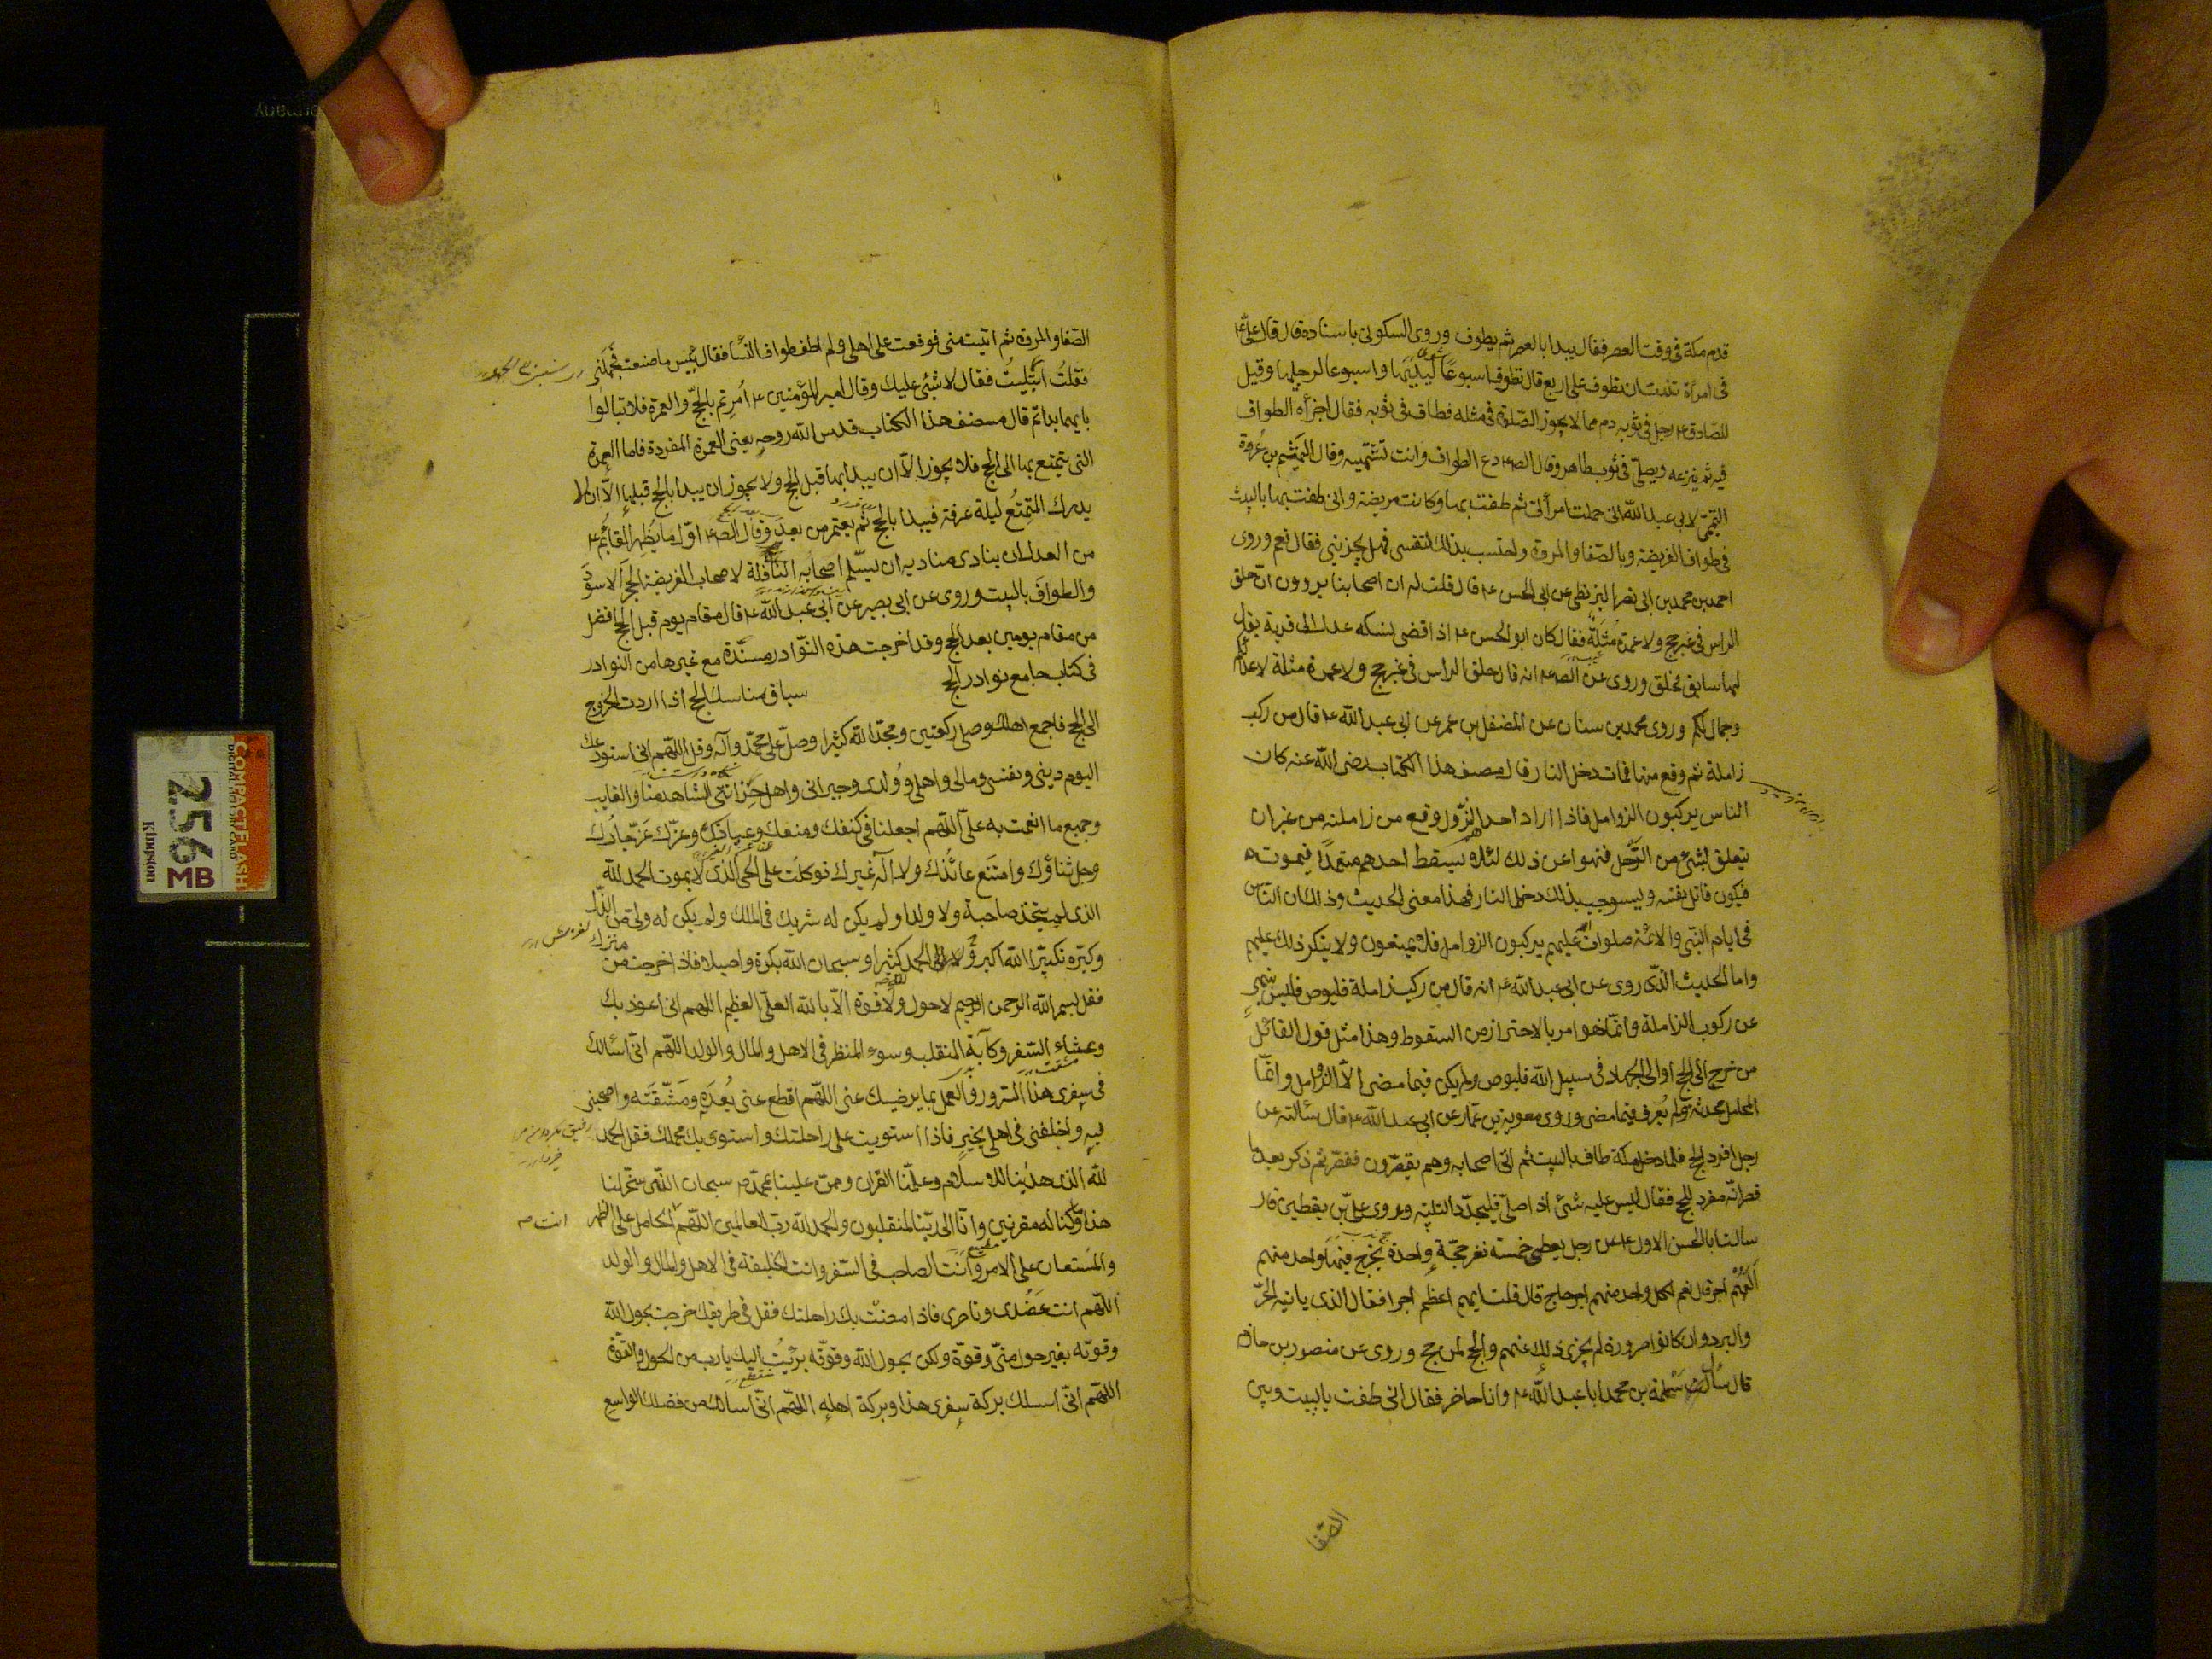 قدم مكة فى وقت العصر فقال يبدا بالعصر ثم يطوف وروى السكونى باسناده قال قال على ع
فى امرأة نذرت ان تطوف على اربع قال تطوف اسبوعا ليديها واسبوعا لرجليها وقيل
للصادق ع رجل فى ثوبه دم مما لا يجوز الصلوة فى مثله فطاف فى ثوبه فقال اجزأه الطواف
فيه ثم ينزعه ويصلى فى ثوب طاهر وقال الص ع دع الطواف وانت تشتهيه وقال الهيثم بن عروة
التميمى لابى عبد الله انى حملت امرأتى ثم طفت بها وكانت مريضة وانى طفت بها بالبيت
فى طواف الفريضة وبالصفا والمروة واحتسب بذلك لنفسى فهل يجزينى فقال نعم وروى
احمد بن محمد بن ابى نصر البزنطى عن ابى الحسن ع قال قلت له ان اصحابنا يروون ان حلق
الراس فى غير حج ولا عمرة مثلة فقال كان ابو الحسن ع اذا قضى نسكه عدل الى قرية يقال
لها سايق فحلق وروى عن الص ع انه قال حلق الراس فى غير حج ولا عمرة مثلة لاعدائكم
وجمال لكم وروى محمد بن سنان عن المفضل بن عمر عن ابى عبد الله ع قال من ركب
زاملة ثم وقع منها فمات دخل النار قال مصنف هذا الكتاب رضى الله عنه كان
الناس يركبون الزوامل فاذا اراد احد النزول وقع من زاملته من غير ان
يتعلق بشئ من الرحل فنهوا عن ذلك لئلا يسقط احدهم متعمدا فيموت
فيكون قاتل نفسه ويستوجب بذلك دخول النار فهذا معنى الحديث وذلك ان الناس
فى ايام النبى والائمة صلوات الله عليهم يركبون الزوامل فلا يمنعون ولا ينكر ذلك عليهم
واما الحديث الذى روى عن ابى عبد الله ع انه قال من ركب زاملة فليوص فليس بنهى
عن ركوب الزاملة وانما هو امر بالاحتراز من السقوط وهذا مثل قول القائل
من خرج الى الحج او الى الجهاد فى سبيل الله فليوص ولم يكن فيما مضى الا الزوامل وانما
المحامل محدثة ولم يعرف فيما مضى وروى معوية بن عمار عن ابى عبد الله ع قال سألته عن
رجل افرد الحج فلما دخل مكة طاف بالبيت ثم اتى اصحابه وهم يقصرون فقصر ثم ذكر بعد ما
قصر انه مفرد للحج فقال ليس عليه شئ اذا صلى فليجدد التلبية وروى على بن يقطين قال
سالت ابا الحسن الاول ع عن رجل يعطى خمسة نفر حجة واحدة يخرج فيها واحد منهم
الهم اجر قال نعم لكل واحد منهم اجر حاج قال قلت ايهم اعظم اجرا فقال الذى يا نيه الحر
والبرد وان كانوا صرورة لم يجزى ذلك عنهم والحج لمن حج وروى عن منصور بن حازم
قال سأل سلمة بن محمد ابا عبد الله ع وانا حاضر فقال انى طفت بالبيت وبين
الصفا
الصفا والمروة ثم اتيت منى فوقعت على اهلى ولم اطف طواف النسا فقال بئس ما صنعت فجهلنى
فقلت ابتليت فقال لا شئ عليك وقال امير المؤمنين ع امرتم بالحج والعمرة فلا تبالوا
بايهما بداتم قال مصنف هذا الكتاب قدس الله روحه يعنى العمرة المفردة فاما العمرة
التى يتمتع بها الى الحج فلا يجوز الا ان يبدا بها قبل الحج ولا يجوز ان يبدا بالحج قبلها الا ان لا
يدرك المتمتع ليلة عرفة فيبدا بالحج ثم يعتمر من بعد وقال الص ع اول ما يظهر القايم ع
من العدل ان ينادى مناديه ان يسلم اصحاب النافلة لاصحاب الفريضة الحجر الاسود
والطواف بالبيت وروى عن ابى بصير عن ابى عبد الله ع قال مقام يوم قبل الحج افضل
من مقام يومين بعد الحج وقد اخرجت هذه النوادر مسندة مع غيرها من النوادر
فى كتاب جامع نوادر الحج سياق مناسك الحج اذا اردت الخروج
الى الحج فاجمع اهلك وصل ركعتين ومجد الله كثيرا وصل على محمد وآله وقل اللهم انى استودعك
اليوم دينى ونفسى ومالى واهلى وولدى وجيرانى واهل حزانتى الشاهد منا والغايب
وجميع ما انعمت به على اللهم اجعلنا فى كنفك ومنعك وعياذك وعزك عز جارك
وجل ثناؤك وامتنع عائذك ولا اله غيرك توكلت على الحى الذى لا يموت الحمد لله
الذى لم يتخذ صاحبة ولا ولدا ولم يكن له شريك فى الملك ولم يكن له ولى من الذل
وكبره تكبيرا الله اكبر والحمد كثيرا وسبحان الله بكرة واصيلا فاذا خرجت من منزلك
فقل بسم الله الرحمن الرحيم لا حول ولا قوة الا بالله العلى العظيم اللهم انى اعوذ بك
وعثاء السفر وكآبة المنقلب وسوء المنظر فى الاهل والمال والولد اللهم انى اسألك
فى سفرى هذا السرور والعمل بما يرضيك عنى اللهم اقطع عنى بعده ومشقته واصحبنى
فيه واخلفنى فى اهلى بخير فاذا استويت على راحلتك واستوى بك محملك فقل الحمد
لله الذى هدينا للاسلام وعلمنا القران ومن علينا بمحمد ص سبحان الذى سخر لنا
هذا وما كنا له مقرنين وانا الى ربنا لمنقلبون والحمد لله رب العالمين اللهم الحامل على الظهر انت ص
والمستعان على الامر وانت الصاحب فى السفر وانت الخليفة فى الاهل والمال والولد
اللهم انت عضدى وناصرى فاذا مضت بك راحلتك فقل فى طريقك خرجت بحول الله
وقوته بغير حول منى وقوة ولكن بحول الله وقوته برئت اليك يا رب من الحول والقوة
اللهم انى اسلك بركة سفرى هذا وبركة اهله اللهم انى اسالك من فضلك الواسع
COMPACTFLASH
256
MB
Kingston